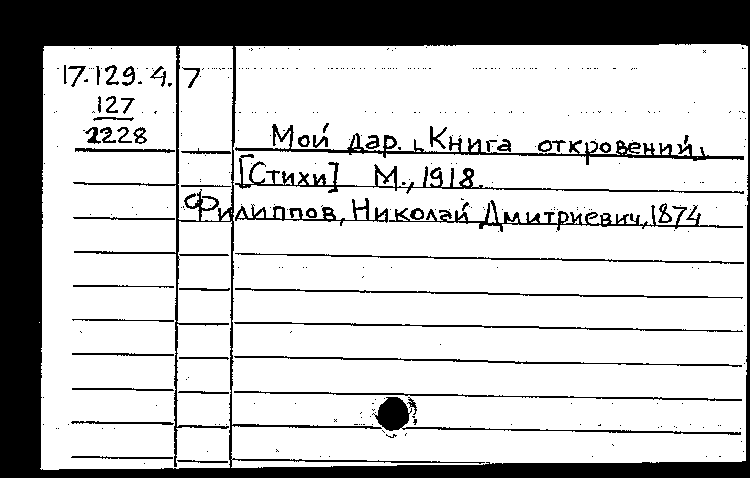 17.129.4.7
127
2228
Мой дар. „Книга откровений„
[Стихи] М., 1918.
Филиппов, Николай Дмитриевич, 1874